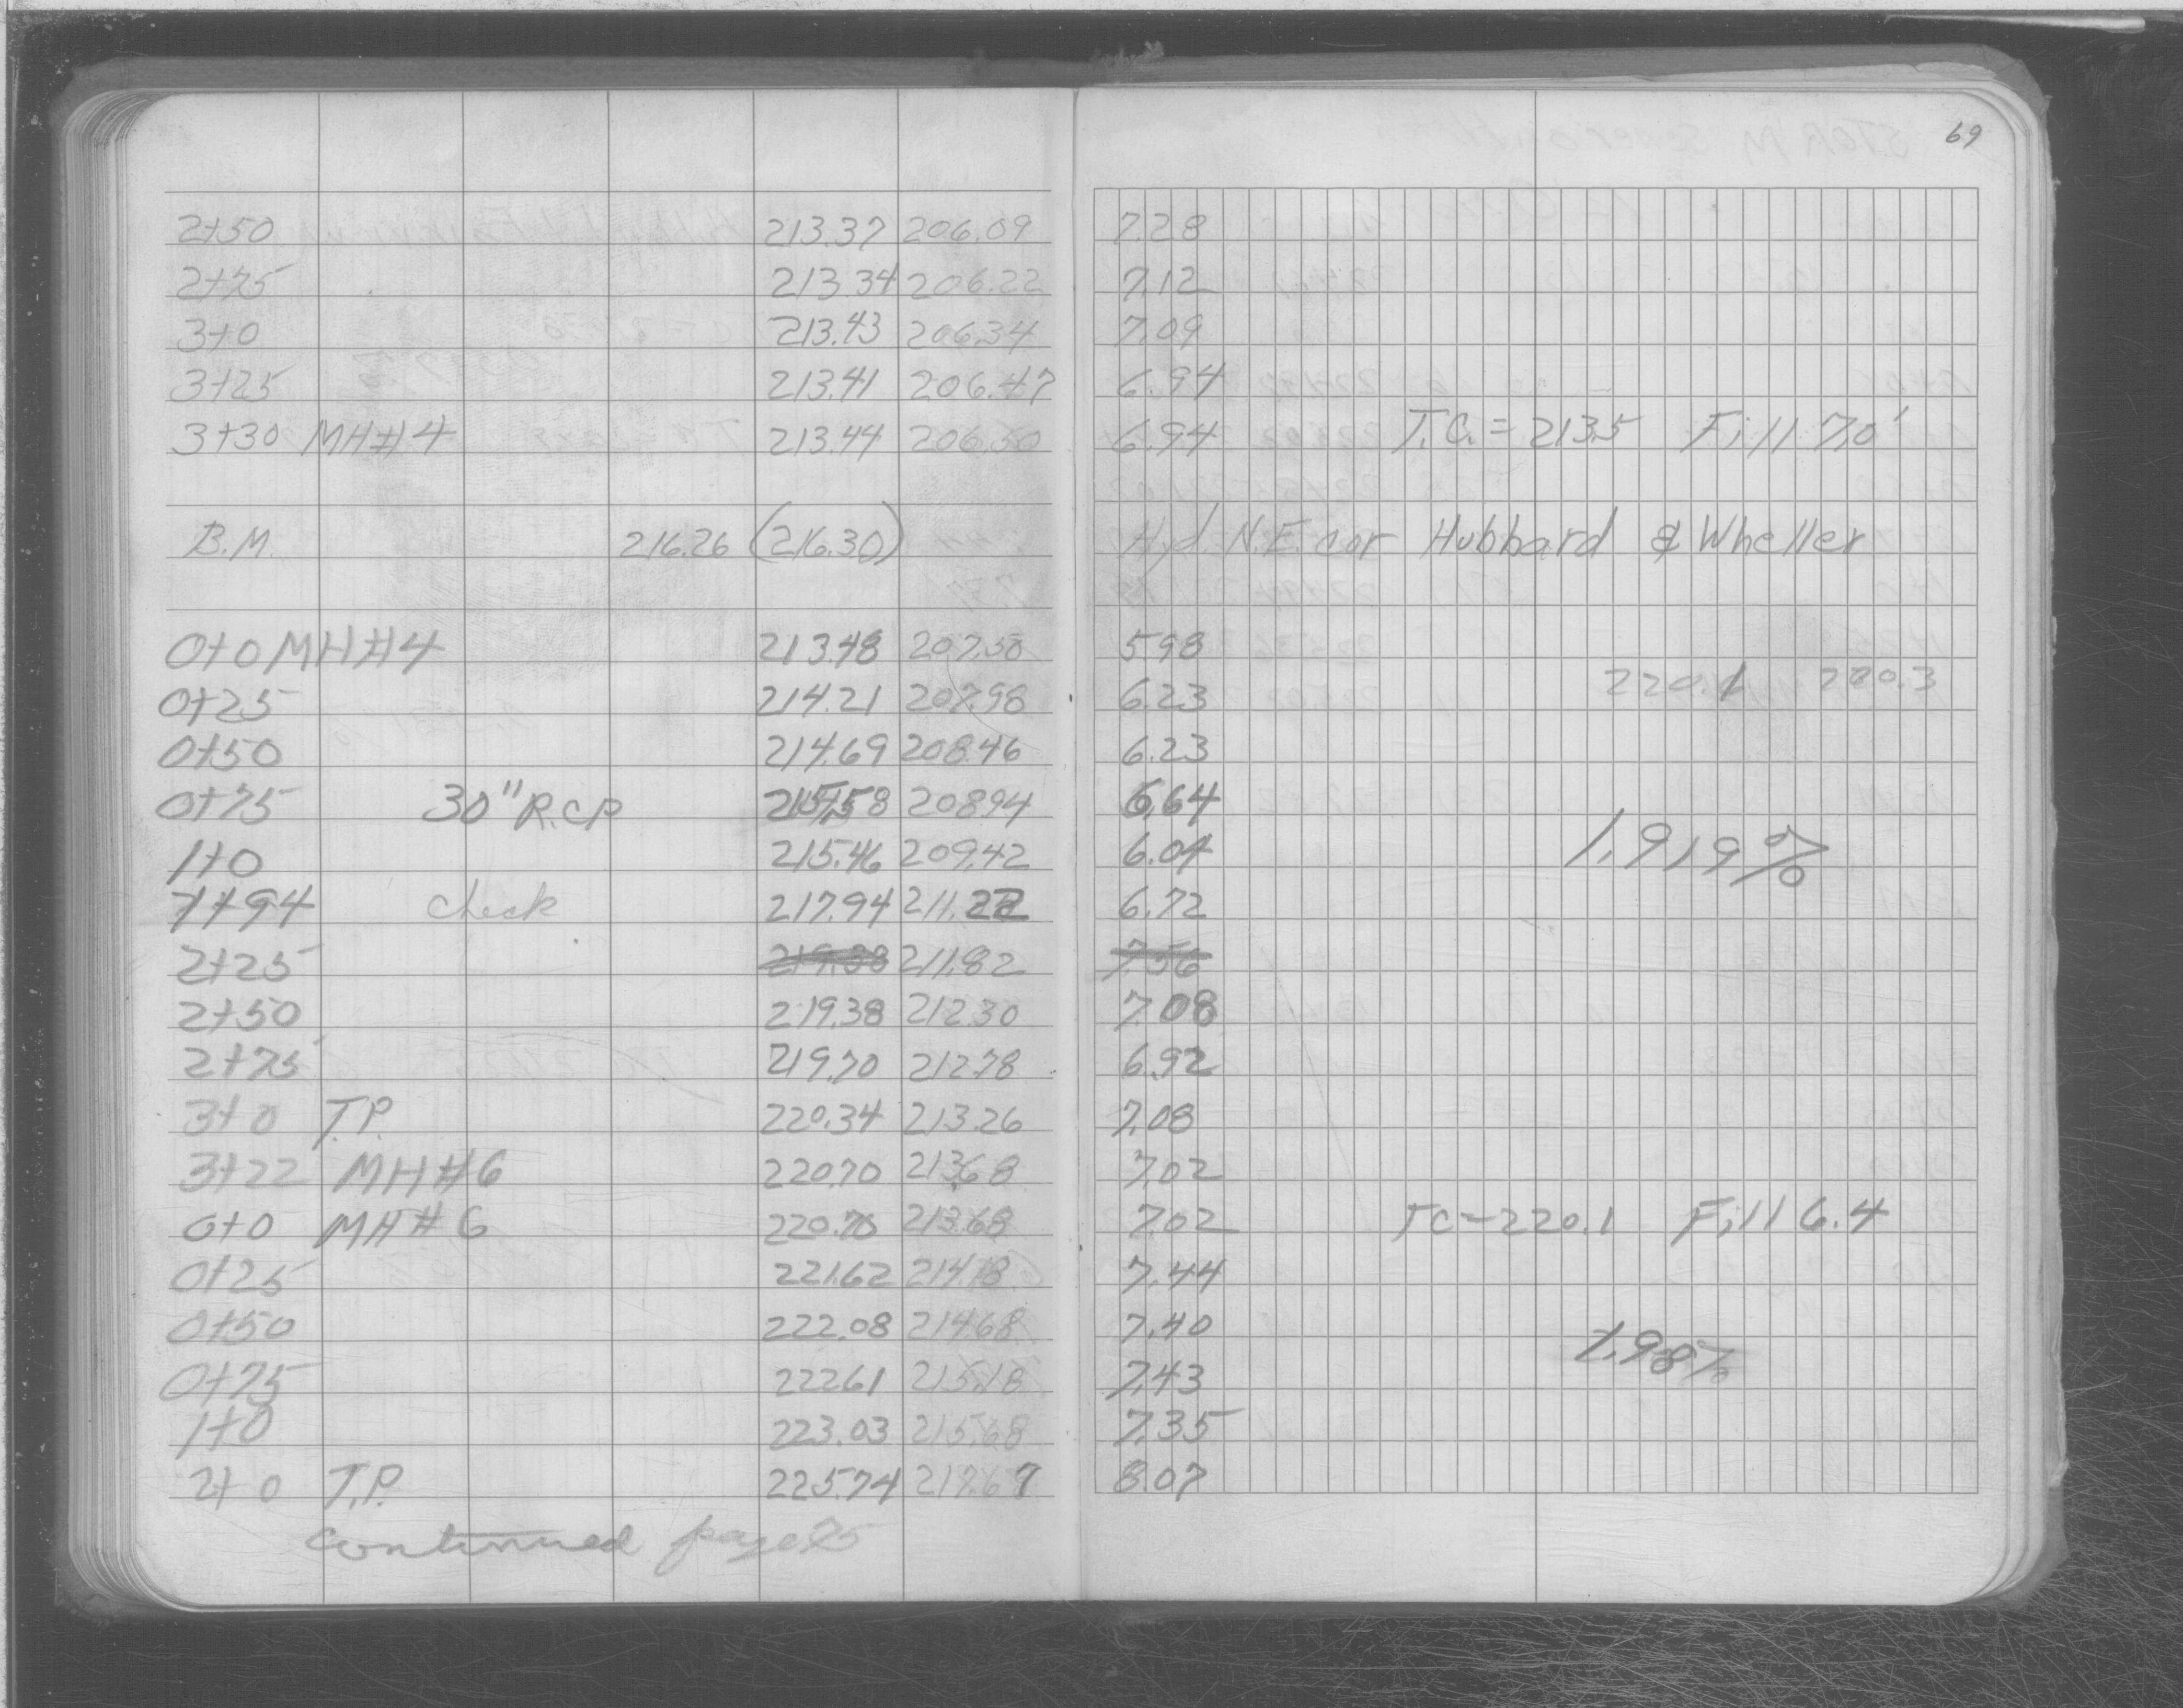 69
2+50 213.37 206.09 7.28
2+75 213.34 206.22 7.12
3+0 213.43 206.34 7.09
3+25 213.41 206.47 6.94
3+30 MH#4 213.44 206.50 6.94 T.C. = 213.5 Fill 7.0'
B.M. 216.26 (216.30) Hyd. N.E. cor Hubbard & Wheller
0+0 MH#4 213.48 207.50 5.98
220.1 220.3
0+25 214.21 207.98 6.23
0+50 214.69 208.46 6.23
0+75 30" R.C.P 215.58 208.94 6.64
1+0 215.46 209.42 6.04 1.919%
1+94 check 217.94 211.22 6.72
2+25 219.38 211.82 7.56
2+50 219.38 212.30 7.08
2+75 219.70 212.78 6.92
3+0 T.P. 220.34 213.26 7.08
3+22 MH#6 220.70 213.68 7.02
0+0 MH#6 220.70 213.68 7.02 TC=220.1 Fill 6.4
0+25 221.62 214.18 7.44
0+50 222.08 214.68 7.40
0+75 222.61 215.18 7.43 1.98%
1+0 223.03 215.68 7.35
2+0 T.P. 225.74 217.67 8.07
continued page 75